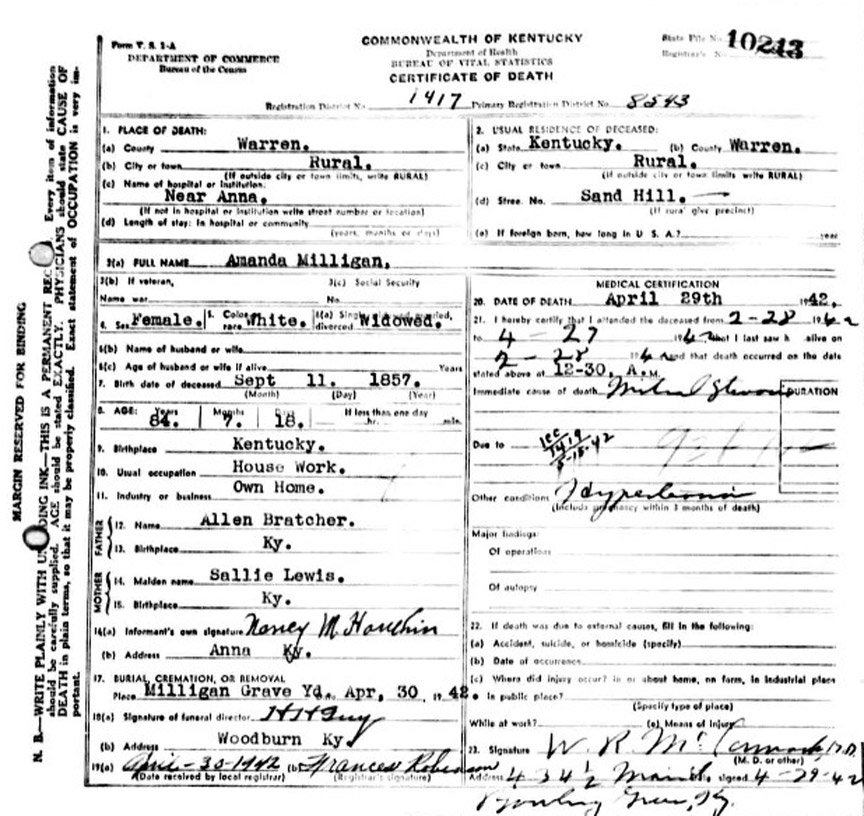 Form V. S. 1-A
DEPARTMENT OF COMMERCE
Bureau of the Census
COMMONWEALTH OF KENTUCKY
Department of Health
BUREAU OF VITAL STATISTICS
CERTIFICATE OF DEATH
State File No. 10213
Registrar's No.
Registration District No. 1417 Primary Registration District No. 8543
MARGIN RESERVED FOR BINDING
N. B.—WRITE PLAINLY WITH UNFADING INK—THIS IS A PERMANENT RECORD. Every item of information
should be carefully supplied. AGE should be stated EXACTLY. PHYSICIANS should state CAUSE OF
DEATH in plain terms, so that it may be properly classified. Exact statement of OCCUPATION is very im-
portant.
1. PLACE OF DEATH:
(a) County Warren.
(b) City or town Rural.
(If outside city or town limits, write RURAL)
(c) Name of hospital or institution:
Near Anna.
(If not in hospital or institution write street number or location)
(d) Length of stay: In hospital or community
(years, months or days)
2. USUAL RESIDENCE OF DECEASED:
(a) State Kentucky. (b) County Warren.
(c) City or town Rural.
(If outside city or town limits write RURAL)
(d) Stree. No. Sand Hill.
(If rural give precinct)
(e) If foreign born, how long in U S. A.? year
3(a) FULL NAME Amanda Milligan.
3(b) If veteran,
Name war
3(c) Social Security
No
4. Sex Female. 5. Color race White. 6(a) Single, widowed, married, divorced Widowed.
6(b) Name of husband or wife
6(c) Age of husband or wife if alive Years
7. Birth date of deceased Sept 11. 1857.
(Month) (Day) (Year)
8. AGE: Years 84. Months 7. Days 18. If less than one day
hr. min.
9. Birthplace Kentucky.
10. Usual occupation House Work.
11. Industry or business Own Home.
FATHER
12. Name Allen Bratcher.
13. Birthplace Ky.
MOTHER
14. Maiden name Sallie Lewis.
15. Birthplace Ky.
16(a) Informant's own signature Nancy M Houchin
(b) Address Anna Ky.
17. BURIAL, CREMATION, OR REMOVAL
Place Milligan Grave Yd. Apr, 30, 1942.
18(a) Signature of funeral director H H Guy
(b) Address Woodburn Ky.
19(a) April-30-1942 (b) Frances Robinson
(Date received by local registrar) (Registrar's signature)
MEDICAL CERTIFICATION
20. DATE OF DEATH April 29th 1942.
21. I hereby certify that I attended the deceased from 2-28 1942
to 4-27 1942, that I last saw h alive on
2-28 1942 and that death occurred on the date
stated above at 12-30, A.M.
Immediate cause of death Mitral
DURATION
Due to
1419
5-15-42
Other conditions
(Include pregnancy within 3 months of death)
Major findings:
Of operations
Of autopsy
22. If death was due to external causes, fill in the following:
(a) Accident, suicide, or homicide (specify)
(b) Date of occurrence
(c) Where did injury occur? in or about home, on farm, in industrial place
in public place?
(Specify type of place)
While at work? (e) Means of injury
23. Signature W. R. McCormack, M.D.
(M. D. or other)
Address 434½ Main Date signed 4-29-42
Bowling Green, Ky.